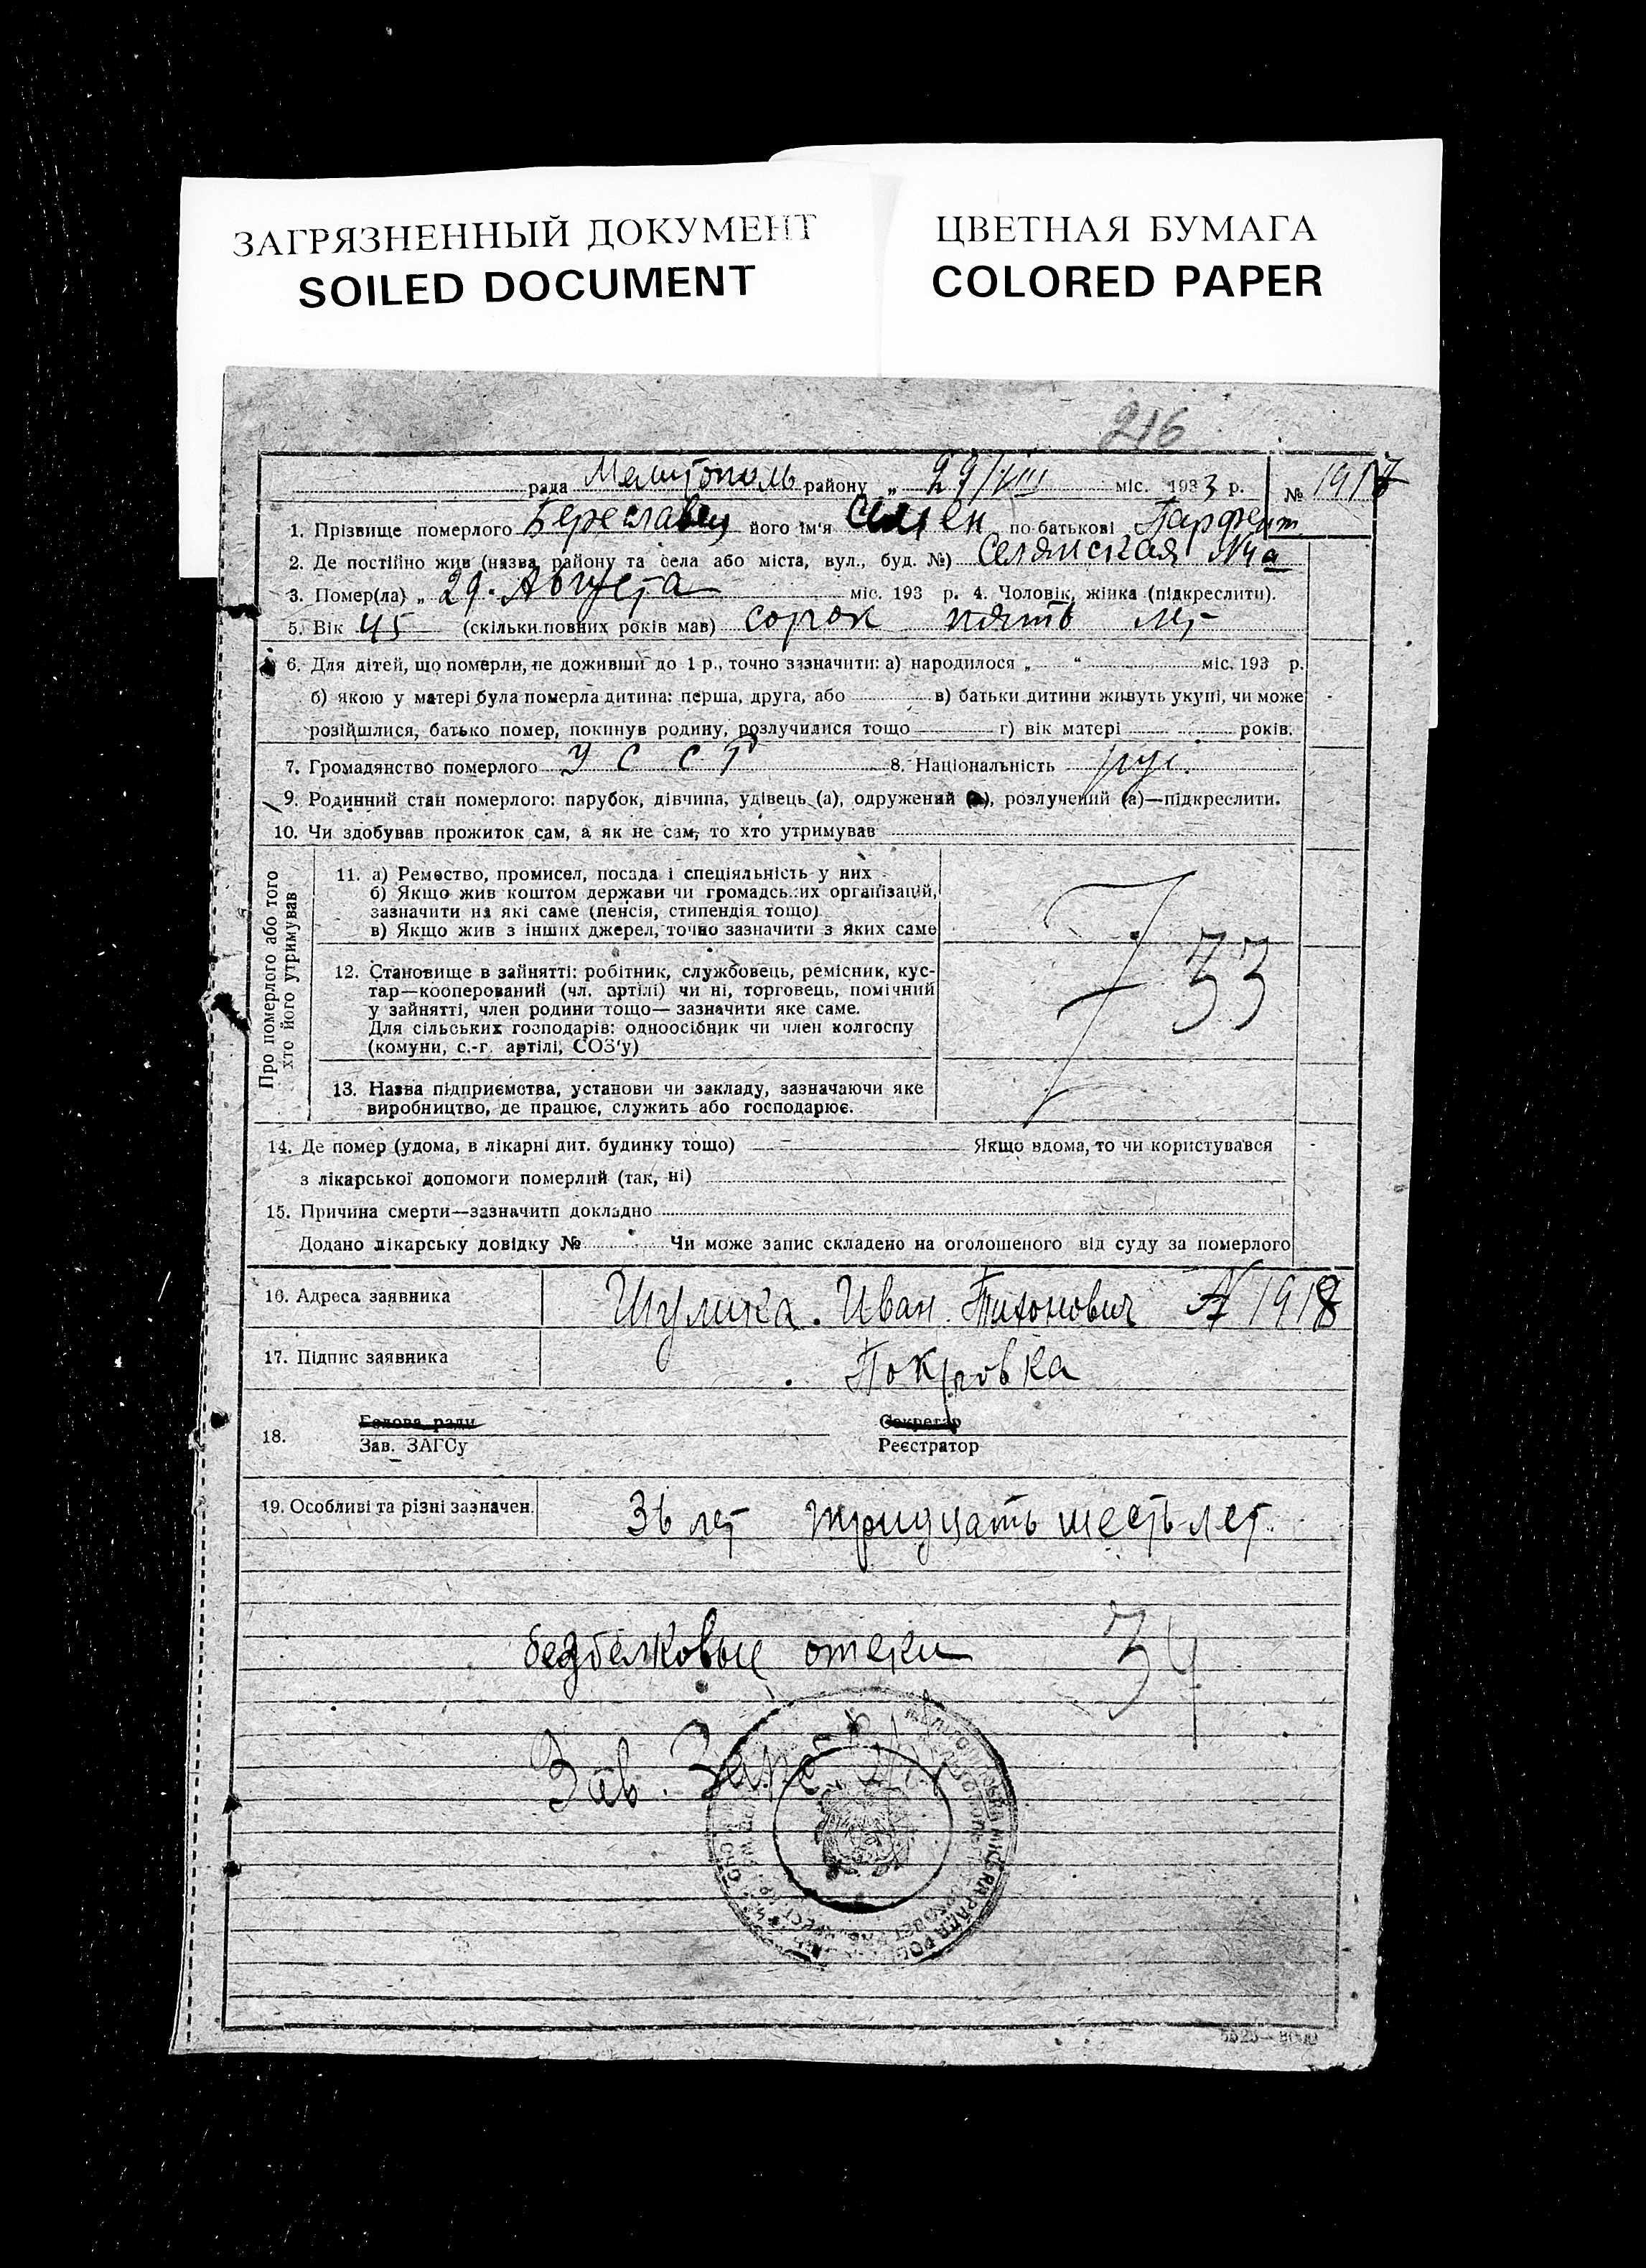 ЗАГРЯЗНЕННЫЙ ДОКУМЕНТ
SOILED DOCUMENT
ЦВЕТНАЯ БУМАГА
COLORED PAPER
216
рада Мелитополь району „ 29/VIII міс. 1933 р. № 1917
1. Прізвище померлого Береславец його ім'я Семен по-батькові Парфент
2. Де постійно жив (назва району та села або міста, вул., буд. №) Селянская №4а
3. Помер(ла) „ 29. Августа міс. 193 р. 4. Чоловік, жінка (підкреслити).
5. Вік 45 (скільки повних років мав) сорок пять лет
6. Для дітей, що померли, не доживши до 1 р., точно зазначити: а) народилося „ “ міс. 193 р.
б) якою у матері була померла дитина: перша, друга, або в) батьки дитини живуть укупі, чи може
розійшлися, батько помер, покинув родину, розлучилися тощо г) вік матері років.
7. Громадянство померлого У С С Р 8. Національність рус.
9. Родинний стан померлого: парубок, дівчина, удівець (а), одружений (а), розлучений (а)—підкреслити.
10. Чи здобував прожиток сам, а як не сам, то хто утримував
Про померлого або того
хто його утримував
11. а) Ремество, промисел, посада і спеціяльність у них
б) Якщо жив коштом держави чи громадських організацій,
зазначити на які саме (пенсія, стипендія тощо)
в) Якщо жив з інших джерел, точно зазначити з яких саме
12. Становище в зайнятті: робітник, службовець, ремісник, кус-
тар—кооперований (чл. артілі) чи ні, торговець, помічний
у зайнятті, член родини тощо— зазначити яке саме.
Для сільських господарів: одноосібник чи член колгоспу
(комуни, с.-г. артілі, СОЗ'у)
33
13. Назва підприємства, установи чи закладу, зазначаючи яке
виробництво, де працює, служить або господарює.
14. Де помер (удома, в лікарні дит. будинку тощо) Якщо вдома, то чи користувався
з лікарської допомоги померлий (так, ні)
15. Причина смерти—зазначити докладно
Додано лікарську довідку № Чи може запис складено на оголошеного від суду за померлого
16. Адреса заявника Шулика. Иван. Тихонович № 1918
17. Підпис заявника Покровка
Голова ради Секретар
18. Зав. ЗАГСу Реєстратор
19. Особливі та різні зазначен. 36 лет тридцать шесть лет
безбелковые отеки 34
Зав. Загс
5525—8000